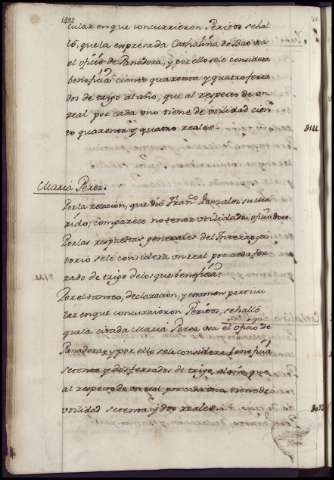 tular en que concurrieron Peritos se hal
ló, que la expresada Cathalina de Barua
el oficio de Panadera, y por ello se le considera
beneficia ciento quarenta y quatro ferra
dos de trigo al año, que al respecto de un
real por cada uno tiene de utilidad cien
to quarenta y quatro reales. 144
Maria Perez.
Por la relación, que dió Franco Gonzalez su ma
rido; comparece no tener utilidad u oficio
Por las respuestas generales del Interroga
torio se le considera un real por cada fer
rado de trigo de los que beneficia
Por el tanteo, declaracion, y examen particu
lar en que concurrieron Peritos, se halló
que la citada Maria Perez usa el oficio de
Panadera, y por ello se la considera beneficia
setenta y dos ferrados de trigo al año, que
al respecto de un real por cada uno tiene de
utilidad setenta y dos reales. 72